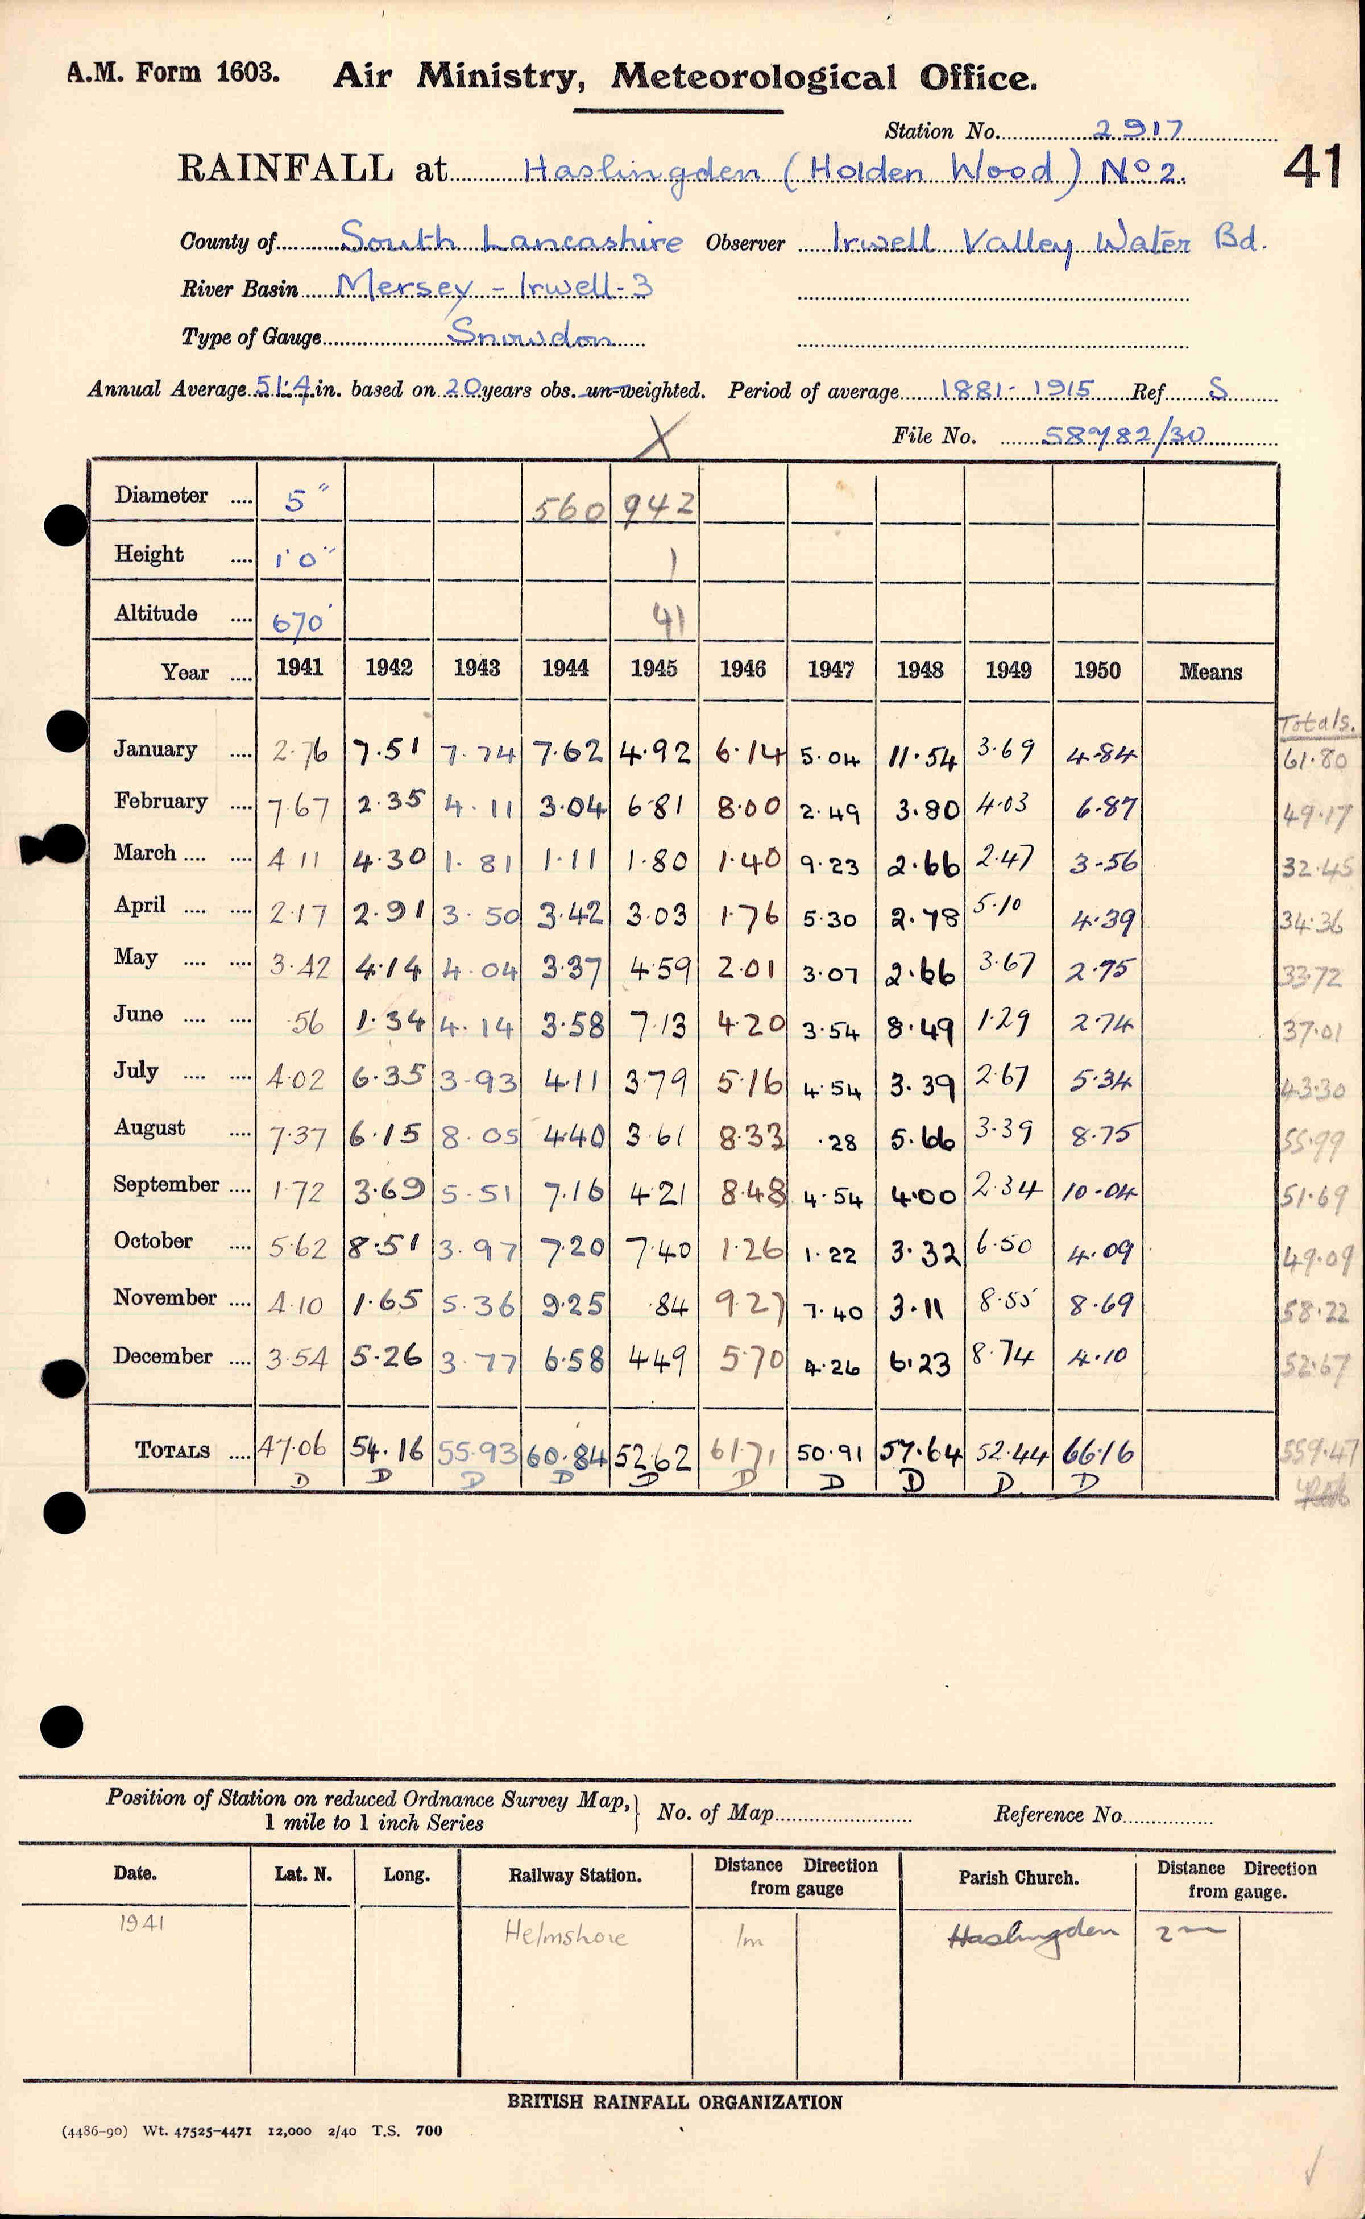 A.M. Form 1603. Air Ministry, Meteorological Office.
Station No. 2917
RAINFALL at Haslingden (Holden Wood) No 2. 41
County of South Lancashire Observer Irwell Valley Water Bd.
River Basin Mersey - Irwell-3
Type of Gauge Snowdon
Annual Average 51.4 in. based on 20 years obs. un-weighted. Period of average 1881-1915 Ref S
X File No. 58782/30
Diameter .... 5" 560 942
Height .... 1'0" 1
Altitude .... 670' 41
Year .... 1941 1942 1943 1944 1945 1946 1947 1948 1949 1950 Means
Totals.
January .... 2.76 7.51 7.74 7.62 4.92 6.14 5.04 11.54 3.69 4.84 61.80
February .... 7.67 2.35 4.11 3.04 6.81 8.00 2.49 3.80 4.03 6.87 49.17
March .... .... 4.11 4.30 1.81 1.11 1.80 1.40 9.23 2.66 2.47 3.56 32.45
April .... .... 2.17 2.91 3.50 3.42 3.03 1.76 5.30 2.78 5.10 4.39 34.36
May .... .... 3.42 4.14 4.04 3.37 4.59 2.01 3.07 2.66 3.67 2.75 33.72
June .... .... .56 1.34 4.14 3.58 7.13 4.20 3.54 8.49 1.29 2.74 37.01
July .... .... 4.02 6.35 3.93 4.11 3.79 5.16 4.54 3.39 2.67 5.34 43.30
August .... 7.37 6.15 8.05 4.40 3.61 8.33 .28 5.66 3.39 8.75 55.99
September .... 1.72 3.69 5.51 7.16 4.21 8.48 4.54 4.00 2.34 10.04 51.69
October .... 5.62 8.51 3.97 7.20 7.40 1.26 1.22 3.32 6.50 4.09 49.09
November .... 4.10 1.65 5.36 9.25 .84 9.27 7.40 3.11 8.55 8.69 58.22
December .... 3.54 5.26 3.77 6.58 4.49 5.70 4.26 6.23 8.74 4.10 52.67
TOTALS .... 47.06 54.16 55.93 60.84 52.62 61.71 50.91 57.64 52.44 66.16 559.47
D D D D D D D D D. D
Position of Station on reduced Ordnance Survey Map,} No. of Map Reference No.
1 mile to 1 inch Series
Date. Lat. N. Long. Railway Station. Distance Direction from gauge Parish Church. Distance Direction from gauge.
1941 Helmshore 1m Haslingden 2m
BRITISH RAINFALL ORGANIZATION
(4486-90) Wt. 47525-4471 12,000 2/40 T.S. 700